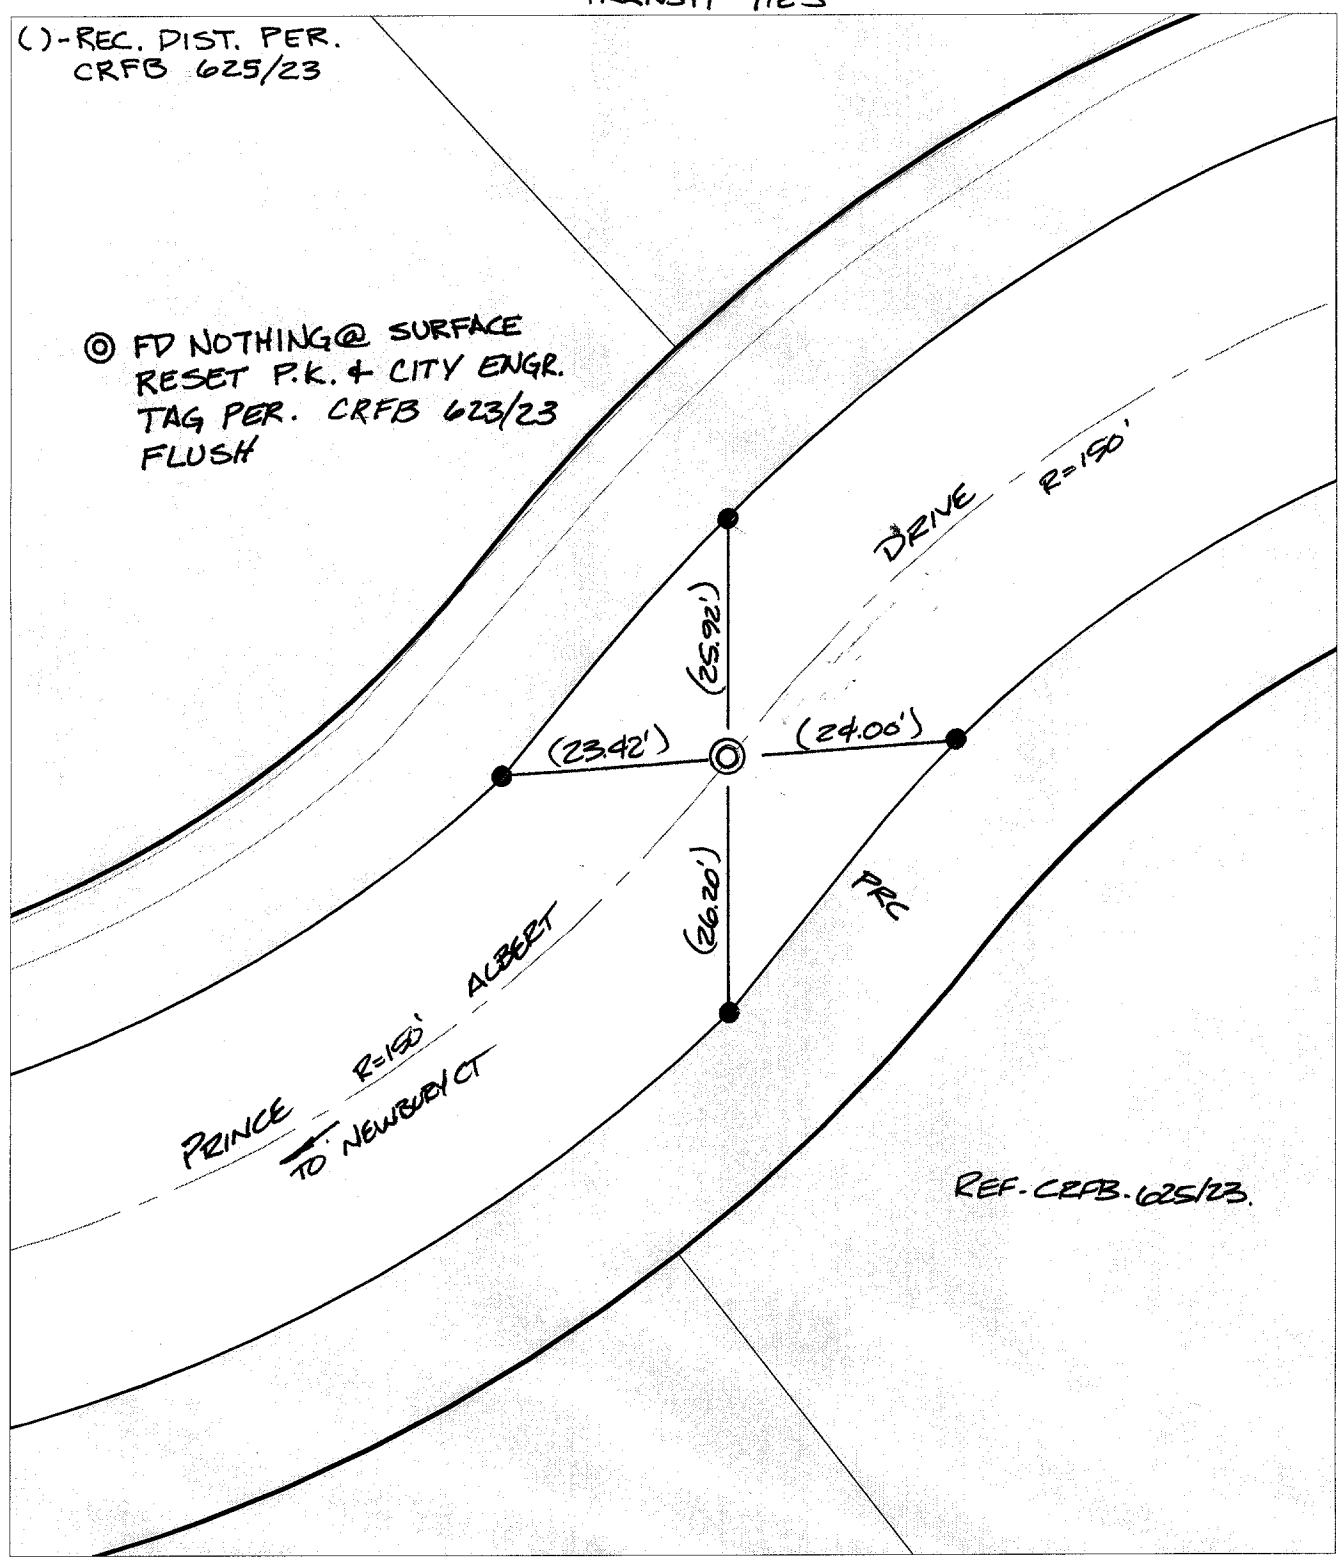 TRANSIT TIES
( )-REC. DIST. PER.
CRFB 625/23
FD NOTHING @ SURFACE
RESET P.K. & CITY ENGR.
TAG PER. CRFB 623/23
FLUSH
DRIVE
R=150'
(25.92')
(23.42')
(24.00')
(26.20')
PRC
ALBERT
R=150'
PRINCE
TO NEWBURY CT
REF. CRFB. 625/23.